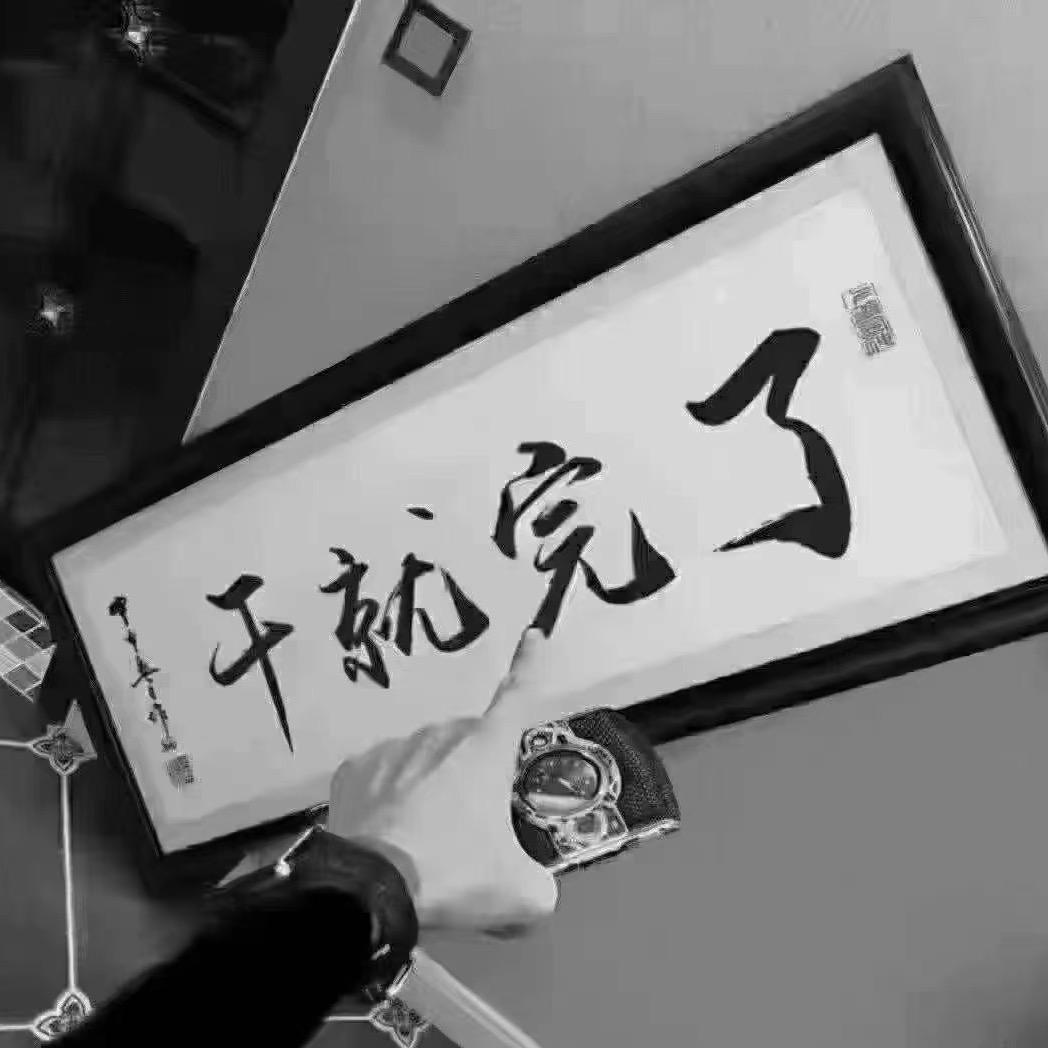 干就完了